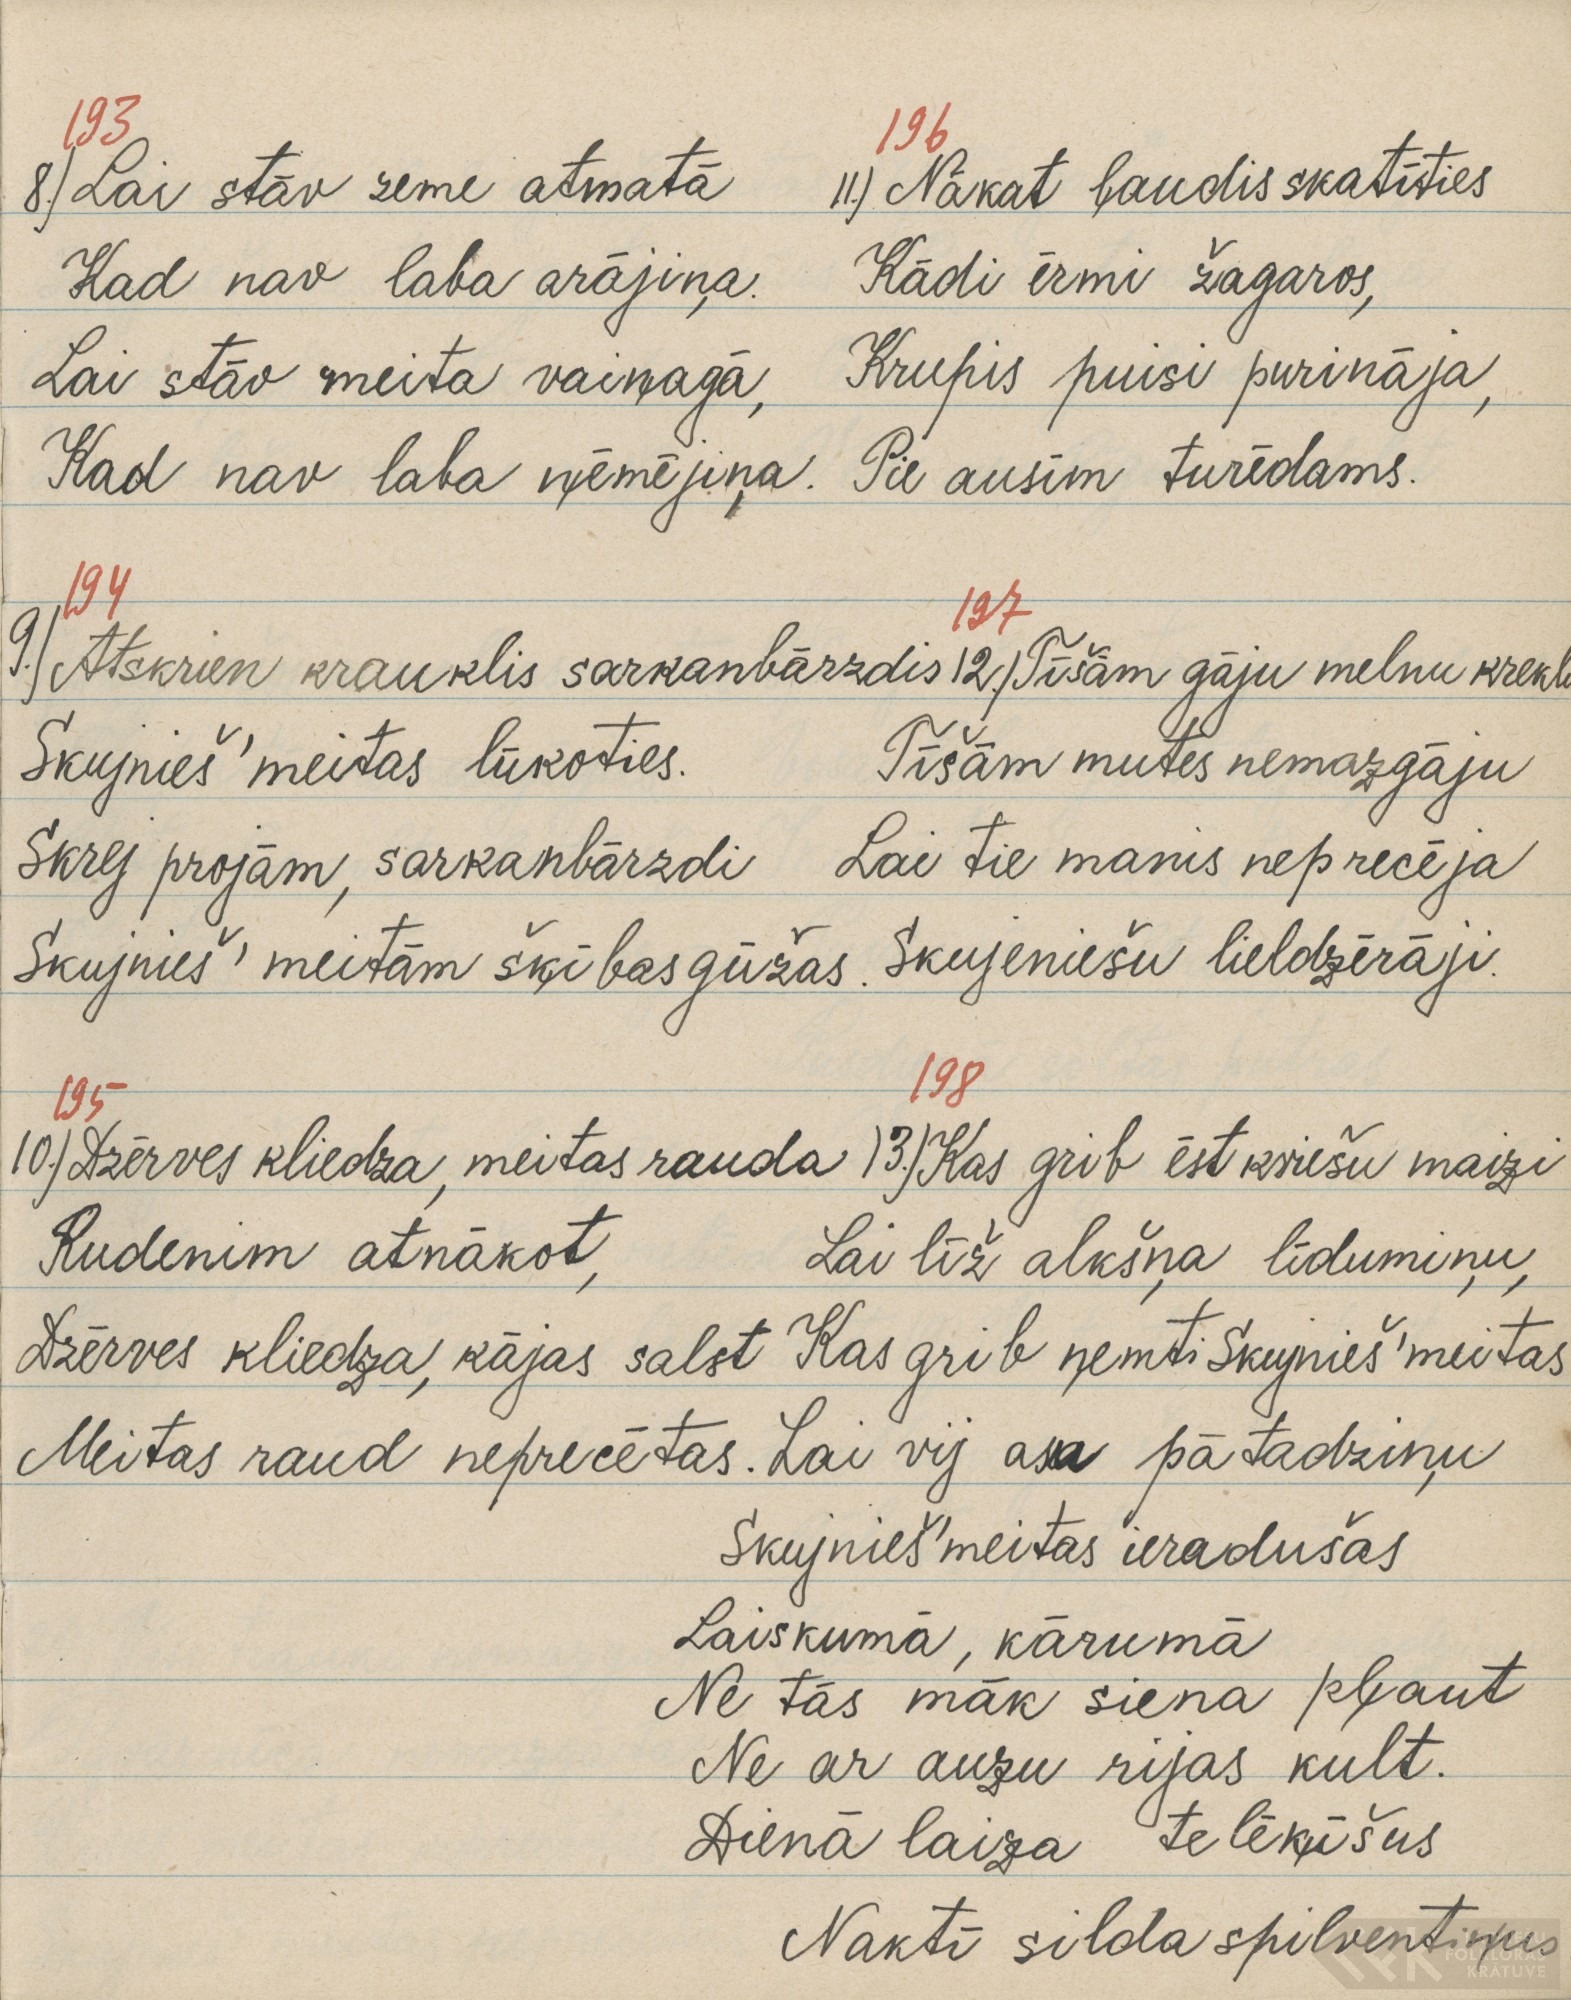 193
8.) Lai stāv zeme atmatā
Kad nav laba arājiņa.
Lai stāv meita vaiņagā,
Kad nav laba ņēmējiņa.
194
9.) Atskrien krauklis sarkanbārzdis
Skujnieš' meitas lūkoties.
Skrej projām, sarkanbārzdi
Skujnieš' meitām šķības gūžas.
195
10.) Dzērves kliedza, meitas rauda
Rudenim atnākot,
Dzērves kliedza, kājas salst
Meitas raud neprecētas.
196
11.) Nākat ļaudis skatīties
Kādi ērmi žagaros,
Krupis puisi purināja,
Pie ausīm turēdams.
197
12.) Tīšām gāju melnu kreklu
Tīšām mutes nemazgāju
Lai tie manis neprecēja
Skujeniešu lieldzērāji.
198
13.) Kas grib ēst kviešu maizi
Lai līž alkšņa līdumiņu,
Kas grib ņemti Skujnieš' meitas
Lai vij asa pātadziņu
Skujnieš' meitas ieradušas
Laiskumā, kārumā
Ne tās māk siena pļaut
Ne ar auzu rijas kult.
Dienā laiza telēķūšus
Naktī silda spilventiņus
FOLKLORAS
KRĀTUVE